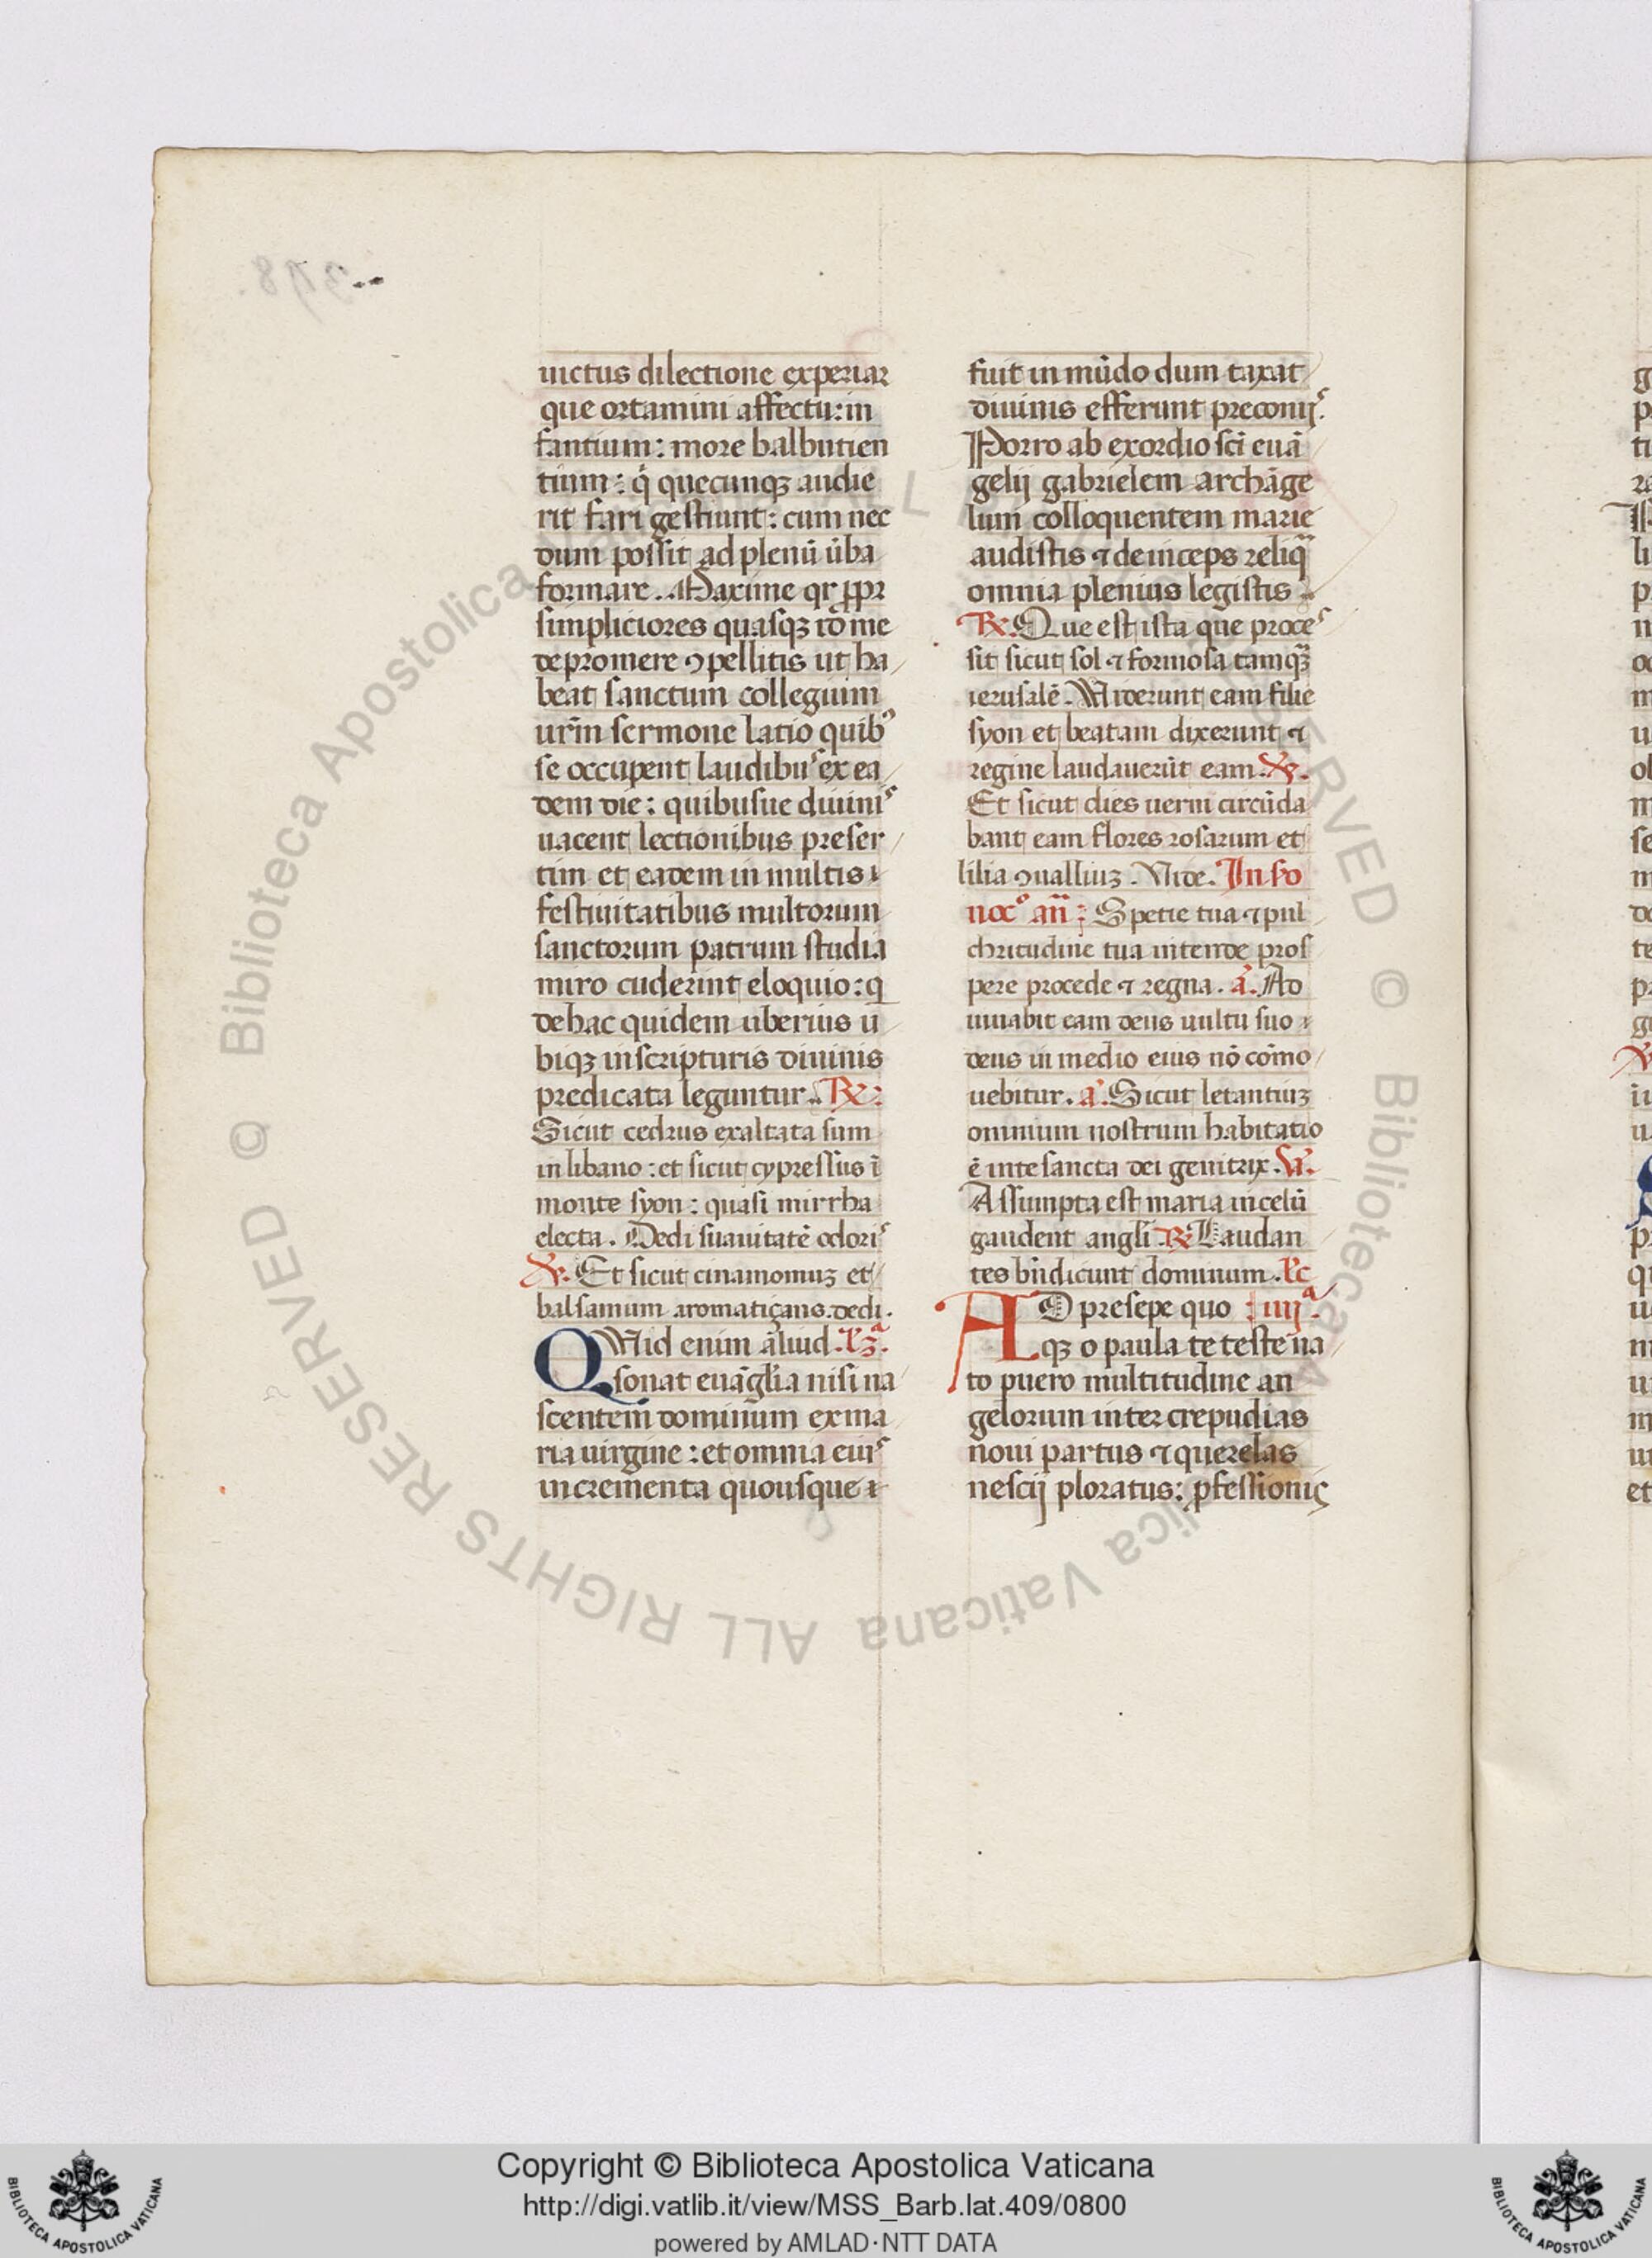 uictus dilectione experiar
que ortamini affectu: in
fantium: more balbutien
tium: q quecunqꝫ audie
rit fari gestiunt: cum nec
dum possit ad plenū ūba
formare. Maxime qr ppr
simpliciores quasqꝫ ro me
depromere ꝯpellitis ut ha
beat sanctum collegium
urm̄ sermone latio quibꝰ
se occupent laudibus ex ea
dem die: quibusue diuinis
uacent lectionibus preser
tim et eadem in multis
festiuitatibus multorum
sanctorum patrum studia
miro cuderint eloquio: q
de hac quidem uberius u
biqꝫ in scripturis diuinis
predicata leguntur. ℞:
Sicut cedrus exaltata sum
in libano: et sicut cypressus ī
monte syon: quasi mirrha
electa. Dedi suauitatē odoris
℣. Et sicut cinamomuꝫ et
balsamum aromatiçans. dedi.
QVid enim aliud. l' 3ª.
sonat euāglia nisi na
scentem dominum ex ma
ria uirgine: et omnia eius
incrementa quousque
fuit in mūdo dum taxat
diuinis efferunt preconijs.
Porro ab exordio sc̄i euā
gelij gabrielem archāge
lum colloquentem marie
audistis ⁊ deinceps reliqᵃ
omnia plenius legistis.
℞. Que est ista que proces
sit sicut sol ⁊ formosa tamqꝫ
ierusalē. Viderunt eam filie
syon et beatam dixerunt ⁊
regine laudauerūt eam. ℣.
Et sicut dies uerni circūda
bant eam flores rosarum et
lilia ꝯualliuꝫ. Vide. In so
nocº an̄: Spetie tua ⁊ pul
chritudine tua intende pros
pere procede ⁊ regna. a̅. Ad
iuuabit eam deus uultu suo
deus in medio eius nō cōmo
uebitur. a̅. Sicut letantiuꝫ
omnium nostrum habitatio
ē in te sancta dei genitrix. ℣.
Assumpta est maria in celū
gaudent angli ℞ Laudan
tes bn̄dicunt dominum. lc̄
AD presepe quo : iiijª.
qꝫ o paula te teste na
to puero multitudine an
gelorum inter crepudias
noui partus ⁊ querelas
nescij ploratus: ꝓfessionis
Copyright © Biblioteca Apostolica Vaticana
http://digi.vatlib.it/view/MSS_Barb.lat.409/0800
powered by AMLAD·NTT DATA
BIBLIOTECA APOSTOLICA VATICANA
BIBLIOTECA APOSTOLICA VATICANA
© Biblioteca Apostolica Vaticana ALL RIGHTS RESERVED © Biblioteca Apostolica Vaticana ALL RIGHTS RESERVED